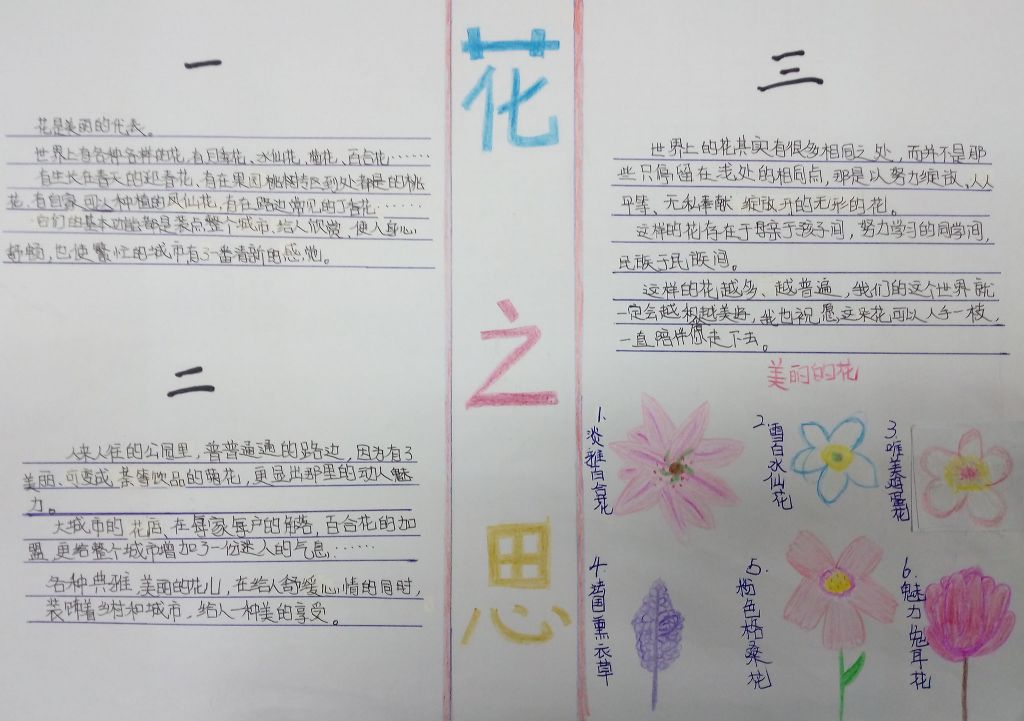 花之思
一
花是美丽的代表。
世界上有各种各样的花，有月季花、水仙花、菊花、百合花……
有生长在春天的迎春花，有在果园桃树专区到处都是的桃
花，有自家四人种植的凤仙花，有在路边常见的丁香花……
它们的基本功能都是装点整个城市，给人欣赏，使人身心
舒畅，也使繁忙的城市有了一番清新的感觉。
二
人来人往的公园里，普普通通的路边，因为有了
美丽、可变成茶等饮品的菊花，更显出那里的动人魅
力。
大城市的花店、在每家每户的角落，百合花的加
盟，更给整个城市增加了一份迷人的气息……
各种典雅、美丽的花儿，在给人舒缓心情的同时，
装饰着乡村和城市，给人一种美的享受。
三
世界上的花其实有很多相同之处，而并不是那
些只停留在浅处的相同点，那是以努力绽放、人人
平等、无私奉献绽放开的无形的花。
这样的花存在于母亲于孩子间，努力学习的同学间，
民族于民族间。
这样的花越多、越普遍，我们的这个世界就
一定会越来越美好，我也祝愿这朵花可以人手一枝，
一直陪伴您走下去。
美丽的花
1.淡雅百合花
2.雪白水仙花
3.唯美鸡蛋花
4.蓝国熏衣草
5.粉色格桑花
6.魅力兔耳花